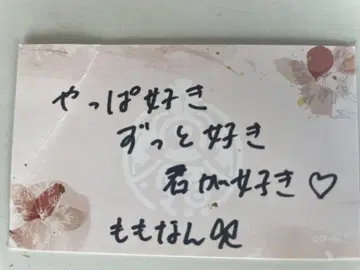 やっぱ好き
ずっと好き
君が好き♡
ももなん